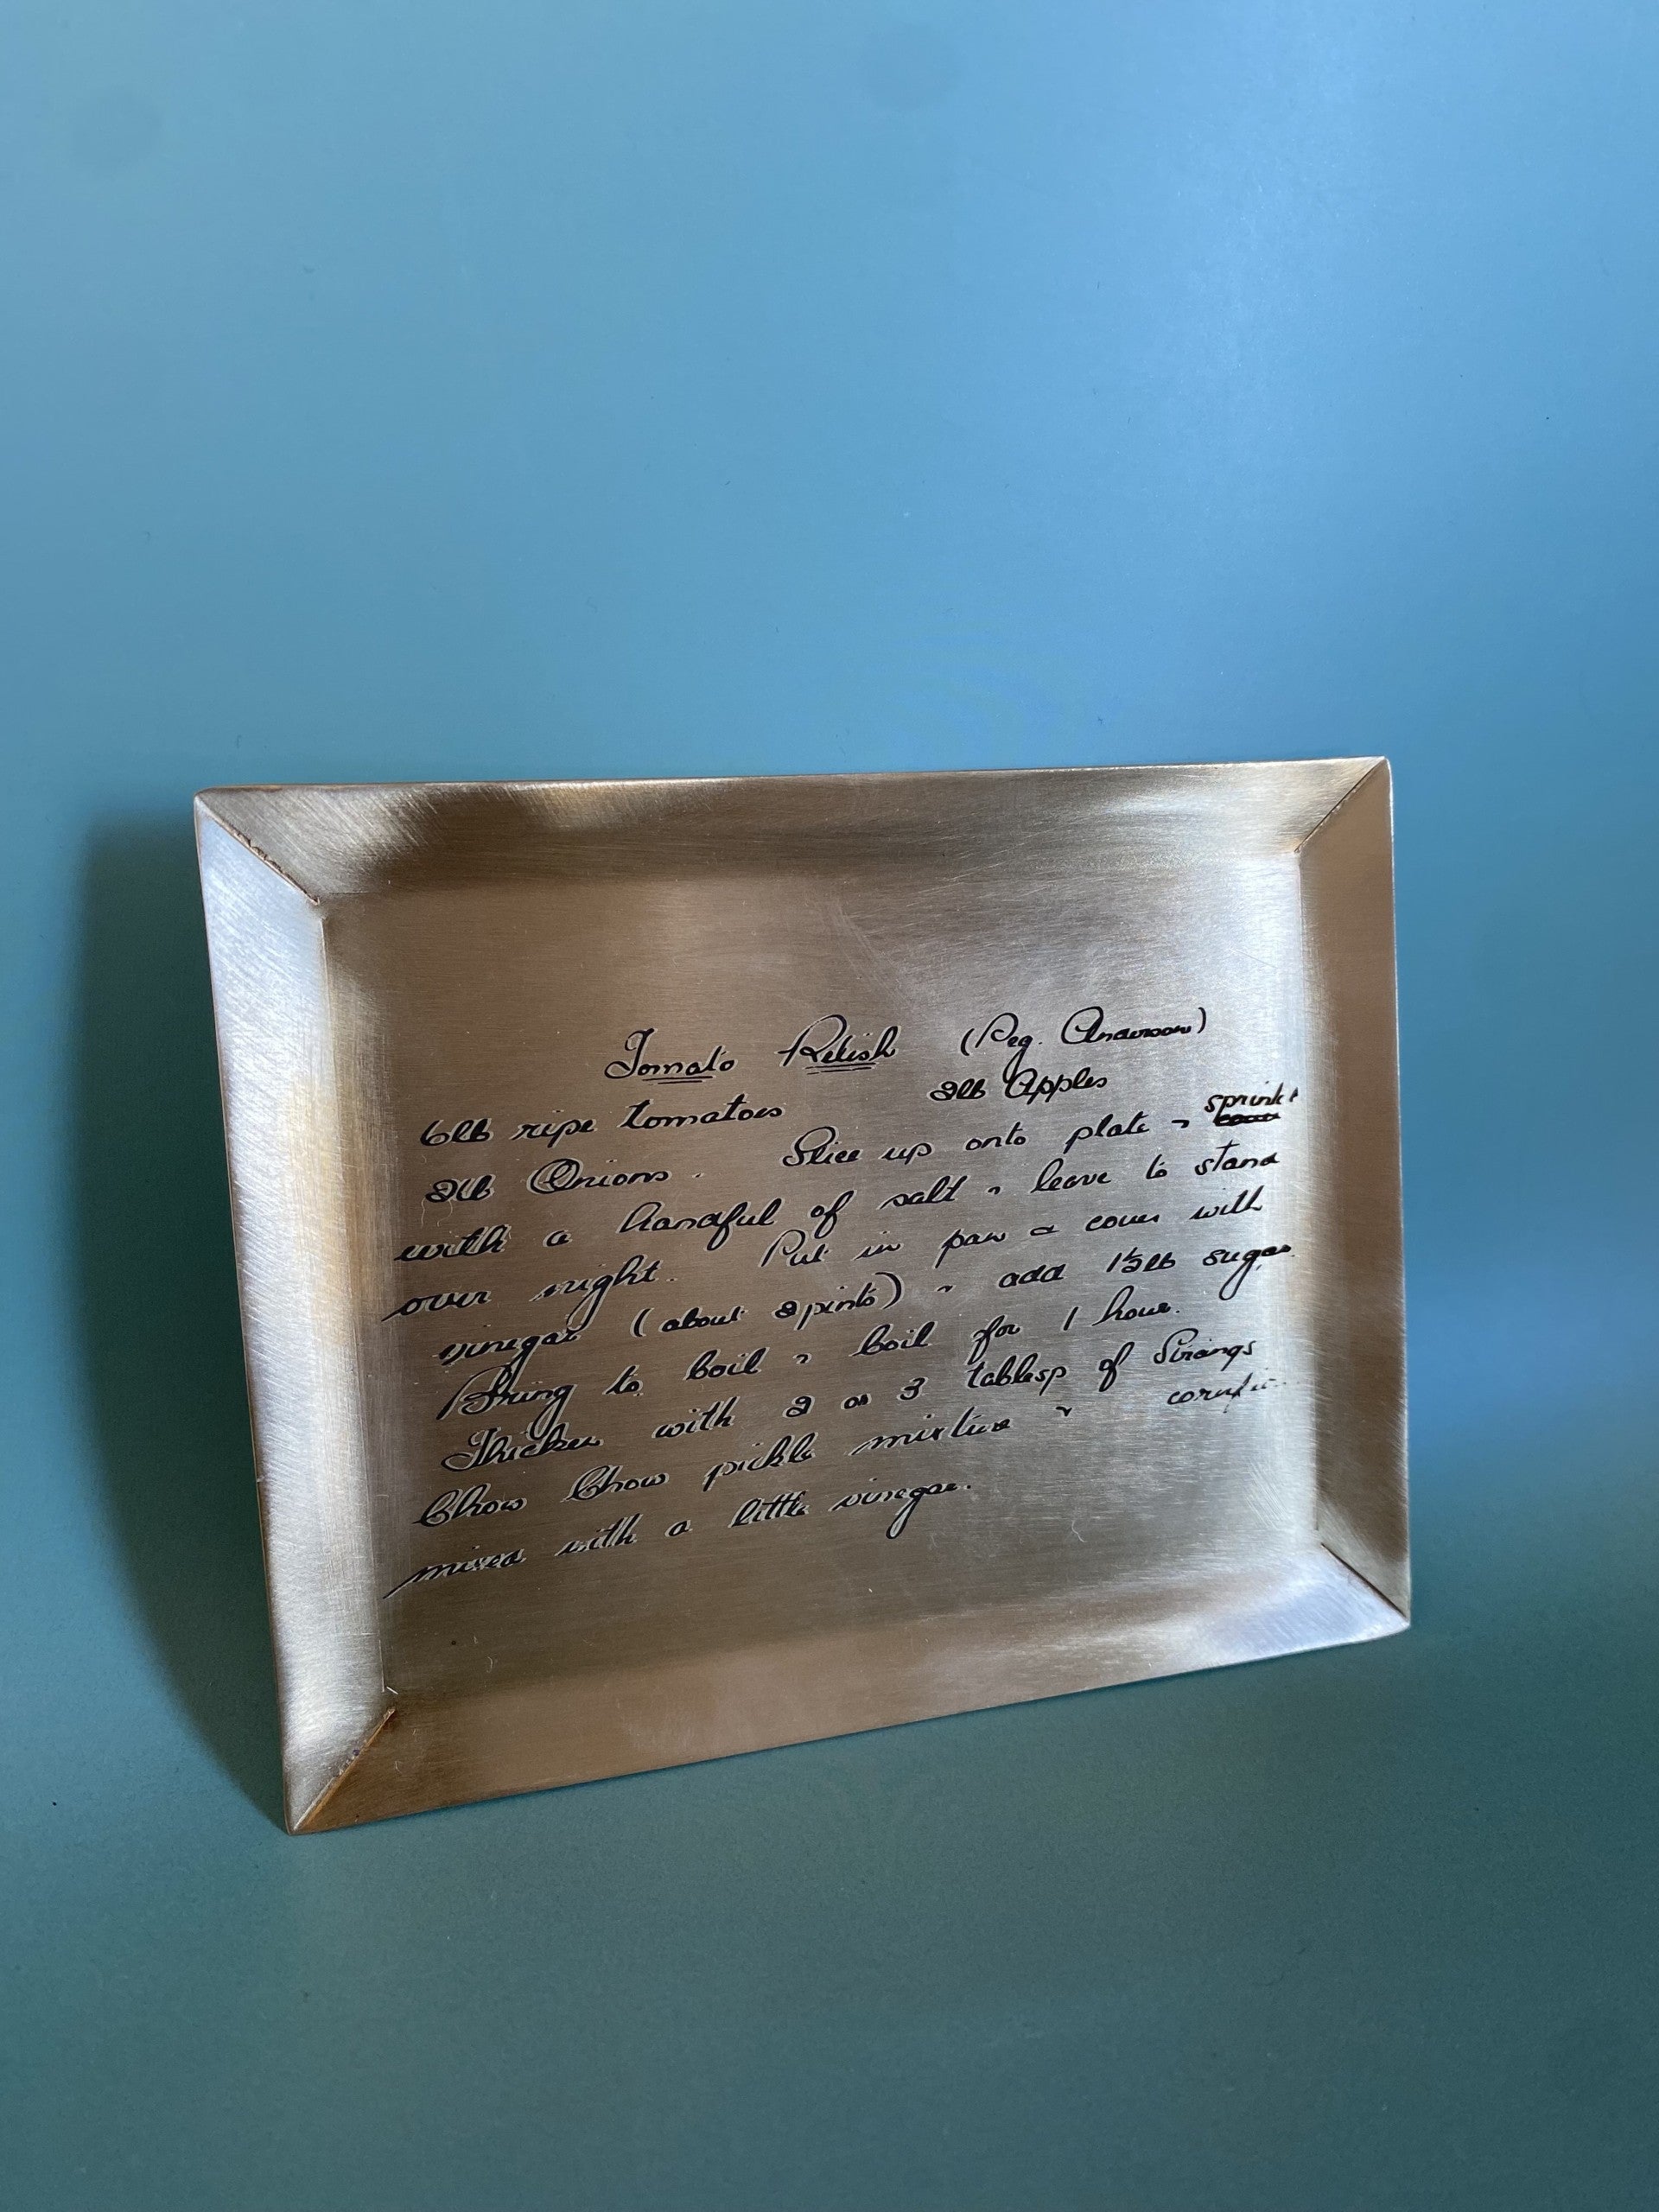 Tomato Relish (Peg. Anderson)
6lb ripe tomatoes 2lb Apples
2lb Onions. Slice up onto plate & sprinkl
with a handful of salt & leave to stand
over night. Put in pan & cover with
vinegar (about 2 pints) & add 1½lb sugar
Bring to boil & boil for 1 hour.
Thicken with 2 or 3 tablesp of Strangs
Chow Chow pickle mixture &
mixed with a little vinegar.